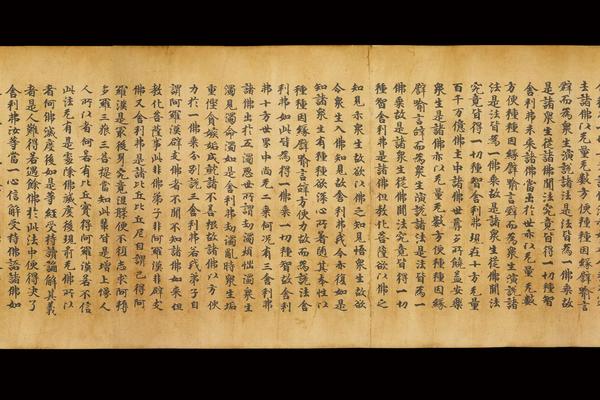 土諸佛以无量无數方便種種因緣譬喻言
辭而為眾生演說諸法是法皆為一佛乘故
是諸眾生從諸佛聞法究竟皆得一切種智
舍利弗未來諸佛當出於世亦以无量无數
方便種種因緣譬喻言辭而為眾生演說諸
法是法皆為一佛乘故是諸眾生從佛聞法
究竟皆得一切種智舍利弗現在十方无量
百千万億佛土中諸佛世尊多所饒益安樂
眾生是諸佛亦以无量无數方便種種因緣
譬喻言辭而為眾生演說諸法是法皆為一
佛乘故是諸眾生從佛聞法究竟皆得一切
種智舍利弗是諸佛但教化菩薩欲以佛之
知見示眾生故欲以佛之知見悟眾生故欲
令眾生入佛知見故舍利弗我今亦復如是
知諸眾生有種種欲深心所著隨其本性以
種種因緣譬喻言辭方便力故而為說法舍
利弗如此皆為得一佛乘一切種智故舍利
弗十方世界中尚无二乘何況有三舍利弗
諸佛出於五濁惡世所謂劫濁煩惱濁眾生
濁見濁命濁如是舍利弗劫濁亂時眾生垢
重慳貪嫉妬成就諸不善根故諸佛以方便
力於一佛乘分別說三舍利弗若我弟子自
謂阿羅漢辟支佛者不聞不知諸佛如來但
教化菩薩事此非佛弟子非阿羅漢非辟支
佛又舍利弗是諸比丘比丘尼自謂已得阿
羅漢是最後身究竟涅槃便不復志求阿耨
多羅三藐三菩提當知此輩皆是增上慢
人所以者何若有比丘實得阿羅漢若不信
此法无有是處除佛滅度後現前无佛所以
者何佛滅度後如是等經受持讀誦解其義
者是人難得若遇餘佛於此法中便得決了
舍利弗汝等當一心信解受持佛語諸佛如